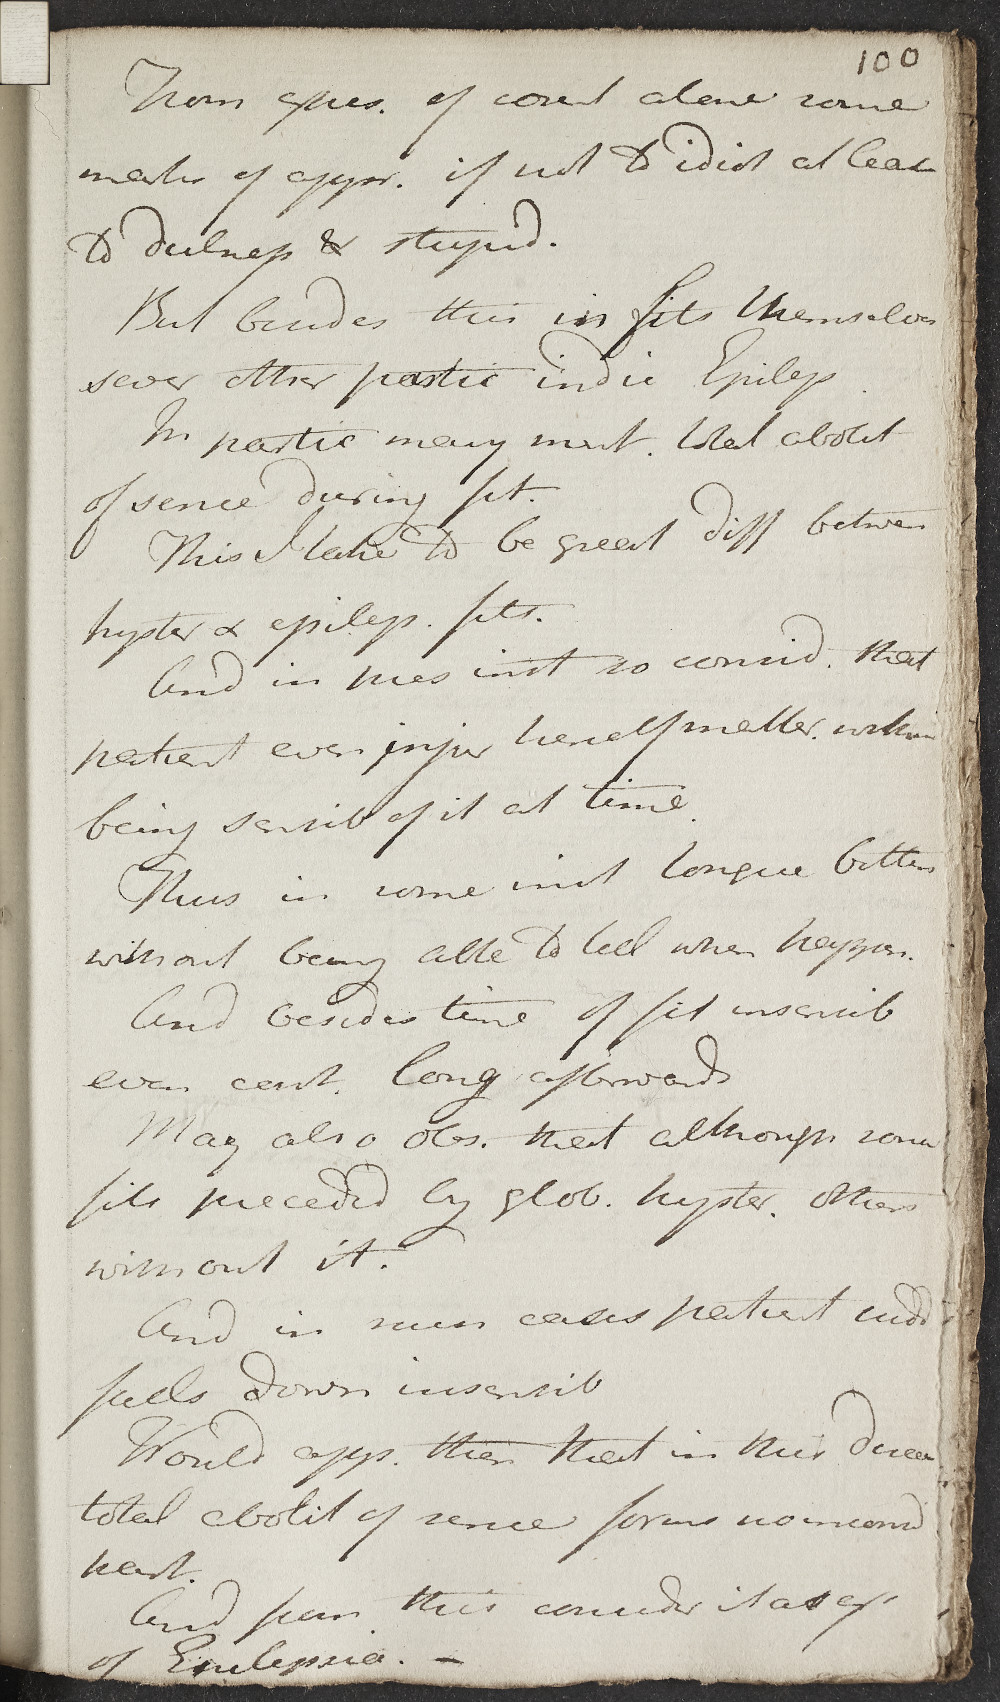 100
From apres. of count alone some
marks of appr. if not to idiot at least
to dulness & stupid.
But besides this in fits themselves
sever other partic indic Epilep
In partic many inst. total abolit
of sence during fit.
This I take to be great diff between
hyster & epilep. fits.
And in pres inst so consid. that
patient even injur herself matter. without
being sensib of it at time.
Thus in some inst tongue bitten
without being able to tell when happen.
And besides time of fit insensib
even cont. long afterwards
May also obs. that although some
fits preceded by glob. hyster. others
without it.
And in num cases patient sudd
falls down insensib
Would app. then that in this disease
total abolit of sence forms no inconsid
part.
And from this consider it as ex.
of Epilepsia. —